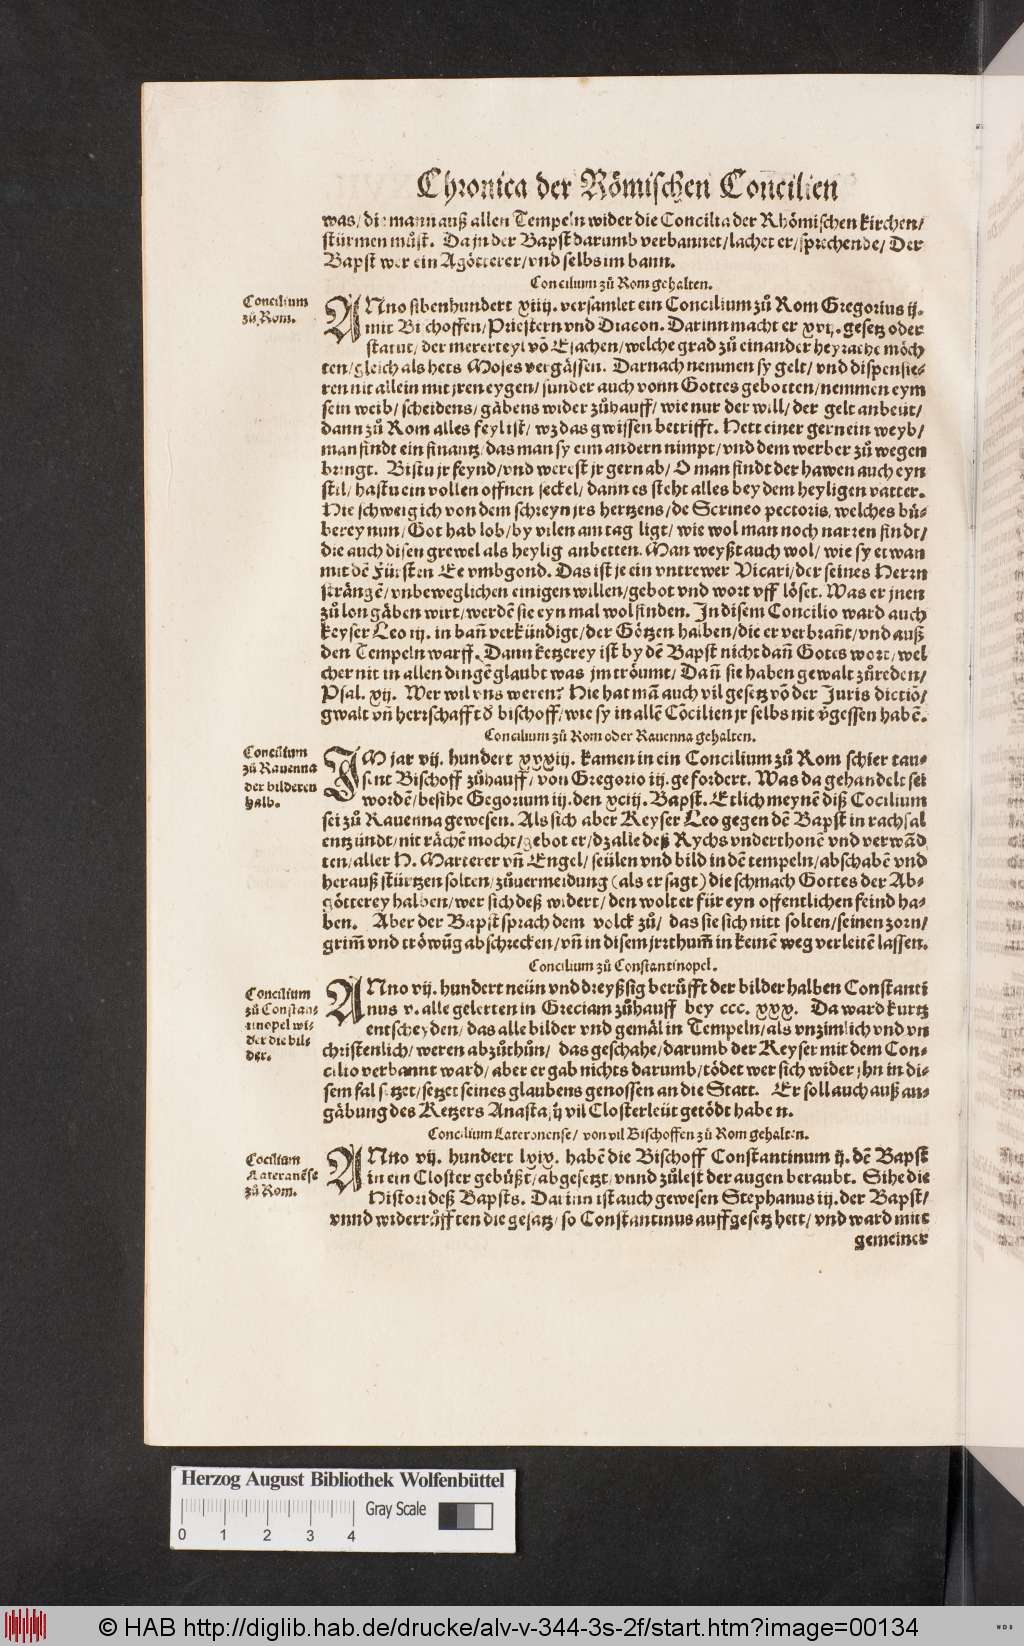 Chronica der Römischen Concilien
was/ die mann auß allen Tempeln wider die Concilia der Rhömischen kirchen/
stürmen můst. Da jn der Bapst darumb verbannet/ lachet er/ sprechende/ Der
Bapst wer ein Agötterer/ vnd selbs im bann.
Concilium zů Rom gehalten.
Concilium
zů Rom.
ANno sibenhundert xiiij. versamlet ein Concilium zů Rom Gregorius ij.
mit Bischoffen/ Priestern vnd Diacon. Darinn macht er xvij. gesetz oder
statut/ der mererteyl võ Eesachen/ welche grad zů einander heyrathe möch
ten/ gleich als hets Moses vergässen. Darnach nemmen sy gelt/ vnd dispensie-
ren nit allein mit jren eygen/ sunder auch vonn Gottes gebotten/ nemmen eym
sein weib/ scheidens/ gäbens wider zůhauff/ wie nur der will/ der gelt anbeüt/
dann zů Rom alles feyl ist/ wz das gwissen betrifft. Hett einer gern ein weyb/
man findt ein finantz/ das man sy eim andern nimpt/ vnd dem werber zů wegen
bringt. Bistu jr feynd/ vnd werest jr gern ab/ O man findt der hawen auch eyn
stil/ hastu ein vollen offnen seckel/ dann es steht alles bey dem heyligen vatter.
Hie schweig ich von dem schreyn jrs hertzens/ de Scrineo pectoris, welches bü-
berey nun/ Got hab lob/ by vilen am tag ligt/ wie wol man noch narren findt/
die auch disen grewel als heylig anbetten. Man weyßt auch wol/ wie sy etwan
mit dē Fürsten Ee vmbgond. Das ist je ein vntrewer Vicari/ der seines Herrn
strängē/ vnbeweglichen einigen willen/ gebot vnd wort vff löset. Was er jnen
zů lon gäben wirt/ werdē sie eyn mal wol finden. In disem Concilio ward auch
Keyser Leo iij. in bañ verkündigt/ der Götzen halben/ die er verbrañt/ vnd auß
den Tempeln warff. Dann ketzerey ist by dē Bapst nicht dañ Gotts wort/ wel
cher nit in allen dingē glaubt was jm tröumt/ Dañ sie haben gewalt zůreden/
Psal. xij. Wer wil vns weren? Hie hat mā auch vil gesetz vō der Juris dictiō/
gwalt vñ herrschafft d̕ bischoff/ wie sy in allē Cōcilien jr selbs nit v̄gessen habē.
Concilium zů Rom oder Rauenna gehalten.
Concilium
zů Rauenna
der bilderen
halb.
IM jar vij. hundert xxxiij. kamen in ein Concilium zů Rom schier tau-
sent Bischoff zůhauff/ von Gregorio iij. gefordert. Was da gehandelt sei
wordē/ besihe Gegorium iij. den xciij. Bapst. Etlich meynē diß Cocilium
sei zů Rauenna gewesen. Als sich aber Keyser Leo gegen dē Bapst in rachsal
entzündt/ nit rächē mocht/ gebot er/ dz alle deß Rychs vnderthonē vnd verwād
ten/ aller H. Marterer vñ Engel/ seülen vnd bild in dē tempeln/ abschabē vnd
herauß stürtzen solten/ zůuermeidung (als er sagt) die schmach Gottes der Ab-
götterey halben/ wer sich deß widert/ den wolt er für eyn offentlichen feind ha-
ben. Aber der Bapst sprach dem volck zů/ das sie sich nitt solten/ seinen zorn/
grim̃ vnd tröwūg abschrecken/ vñ in disem jrrthum̃ in keinē weg verleitē lassen.
Concilium zů Constantinopel.
Concilium
zů Constan-
tinopel wi-
der die bil-
der.
ANno vij. hundert neün vnd dreyßsig berůfft der bilder halben Constanti
nus v. alle gelerten in Greciam zůhauff bey ccc. xxx. Da ward kurtz
entscheyden/ das alle bilder vnd gemäl in Tempeln/ als vnzimlich vnd vn
christenlich/ weren abzůthůn/ das geschahe/ darumb der Keyser mit dem Con-
cilio verbannt ward/ aber er gab nichts darumb/ tödet wer sich wider jhn in di-
sem fal setzet/ setzet seines glaubens genossen an die Statt. Er soll auch auß an-
gäbung des Ketzers Anastasij vil Closterleüt getödt haben.
Concilium Lateronense/ von vil Bischoffen zů Rom gehalten.
Cocilium
Lateranēse
zů Rom.
ANno vij. hundert lxix. habē die Bischoff Constantinum ij. dē Bapst
in ein Closter gebüßt/ abgesetzt/ vnnd zůlest der augen beraubt. Sihe die
Histori deß Bapsts. Darinn ist auch gewesen Stephanus iij. der Bapst/
vnnd widerrůfften die gesatz/ so Constantinus auffgesetz hett/ vnd ward mitt
gemeiner
Herzog August Bibliothek Wolfenbüttel
Gray Scale
0 1 2 3 4
© HAB http://diglib.hab.de/drucke/alv-v-344-3s-2f/start.htm?image=00134